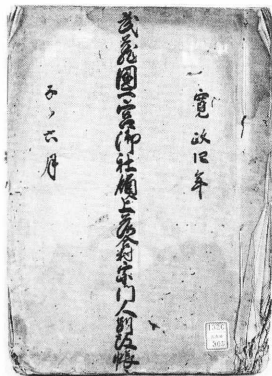 寛政四年
武蔵國一宮御社領上落合村宗門人別改帳
子ノ六月